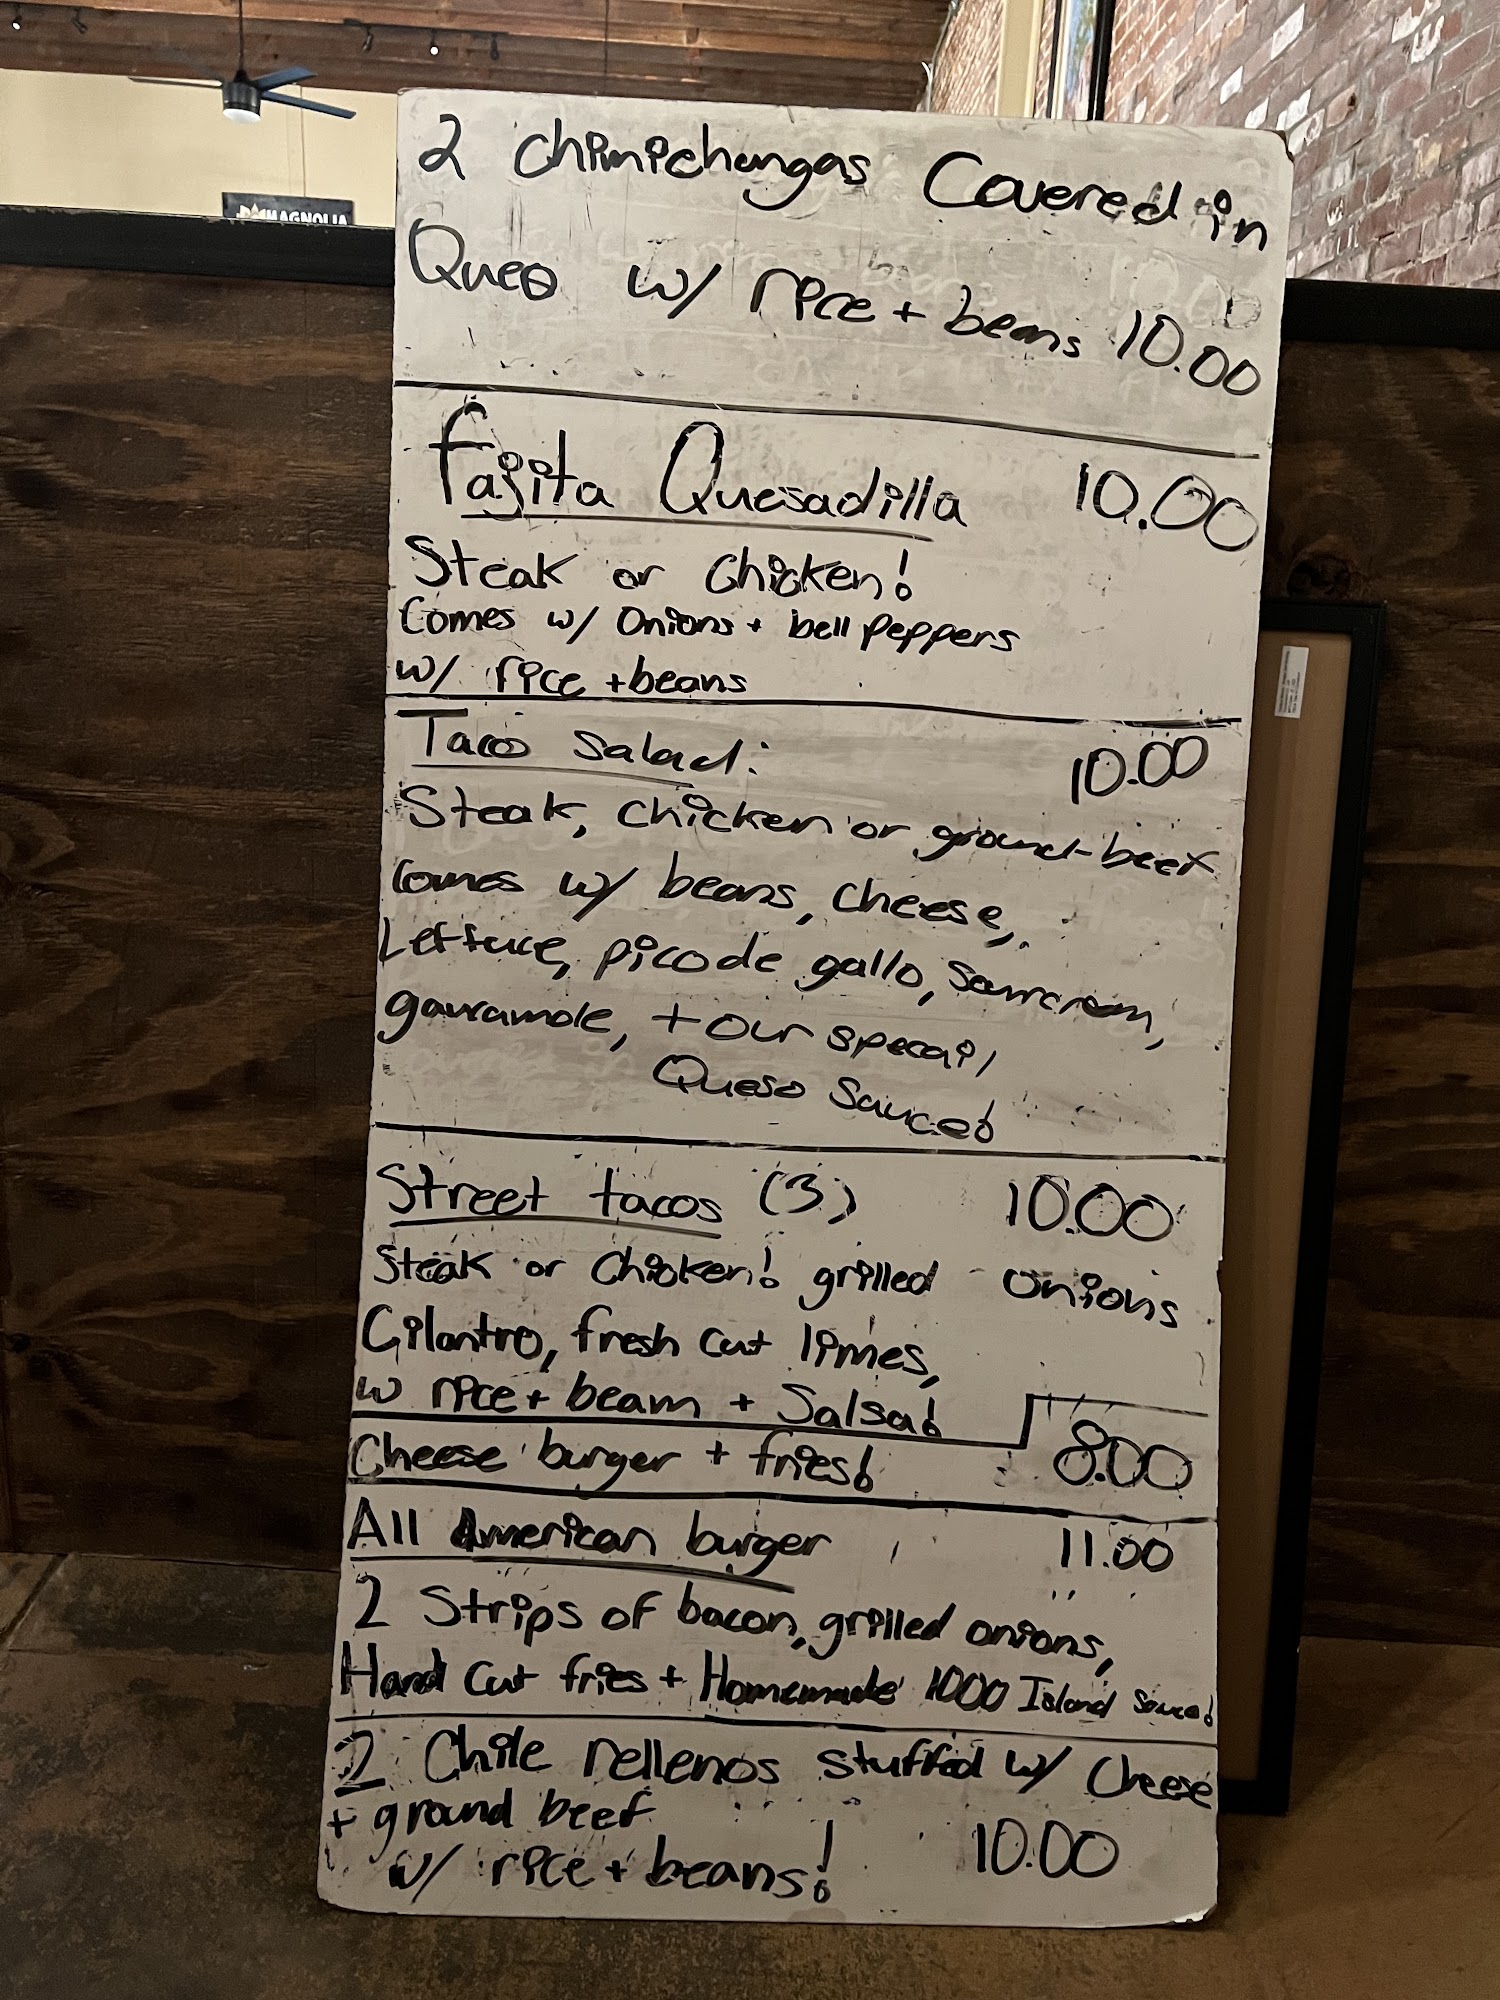 MAGNOLIA
2 Chimichangas Covered in
Queo w/ rice + beans 10.00
Fajita Quesadilla 10.00
Steak or Chicken!
Comes w/ Onions + bell peppers
w/ rice + beans
Taco Salad: 10.00
Steak, Chicken or ground-beef
Comes w/ beans, cheese,
Lettuce, pico de gallo, sourcream,
gauramole, + our specail
Queso Sauce!
Street tacos (3) 10.00
Steak or Chicken! grilled onions
Cilantro, fresh cut limes,
w rice + beam + Salsa!
Cheese burger + fries! 8.00
All American burger 11.00
2 Strips of bacon, grilled onions,
Hand cut fries + Homemade 1000 Island Sauce!
2 Chile rellenos stuffed w/ Cheese
+ ground beef
w/ rice + beans! 10.00